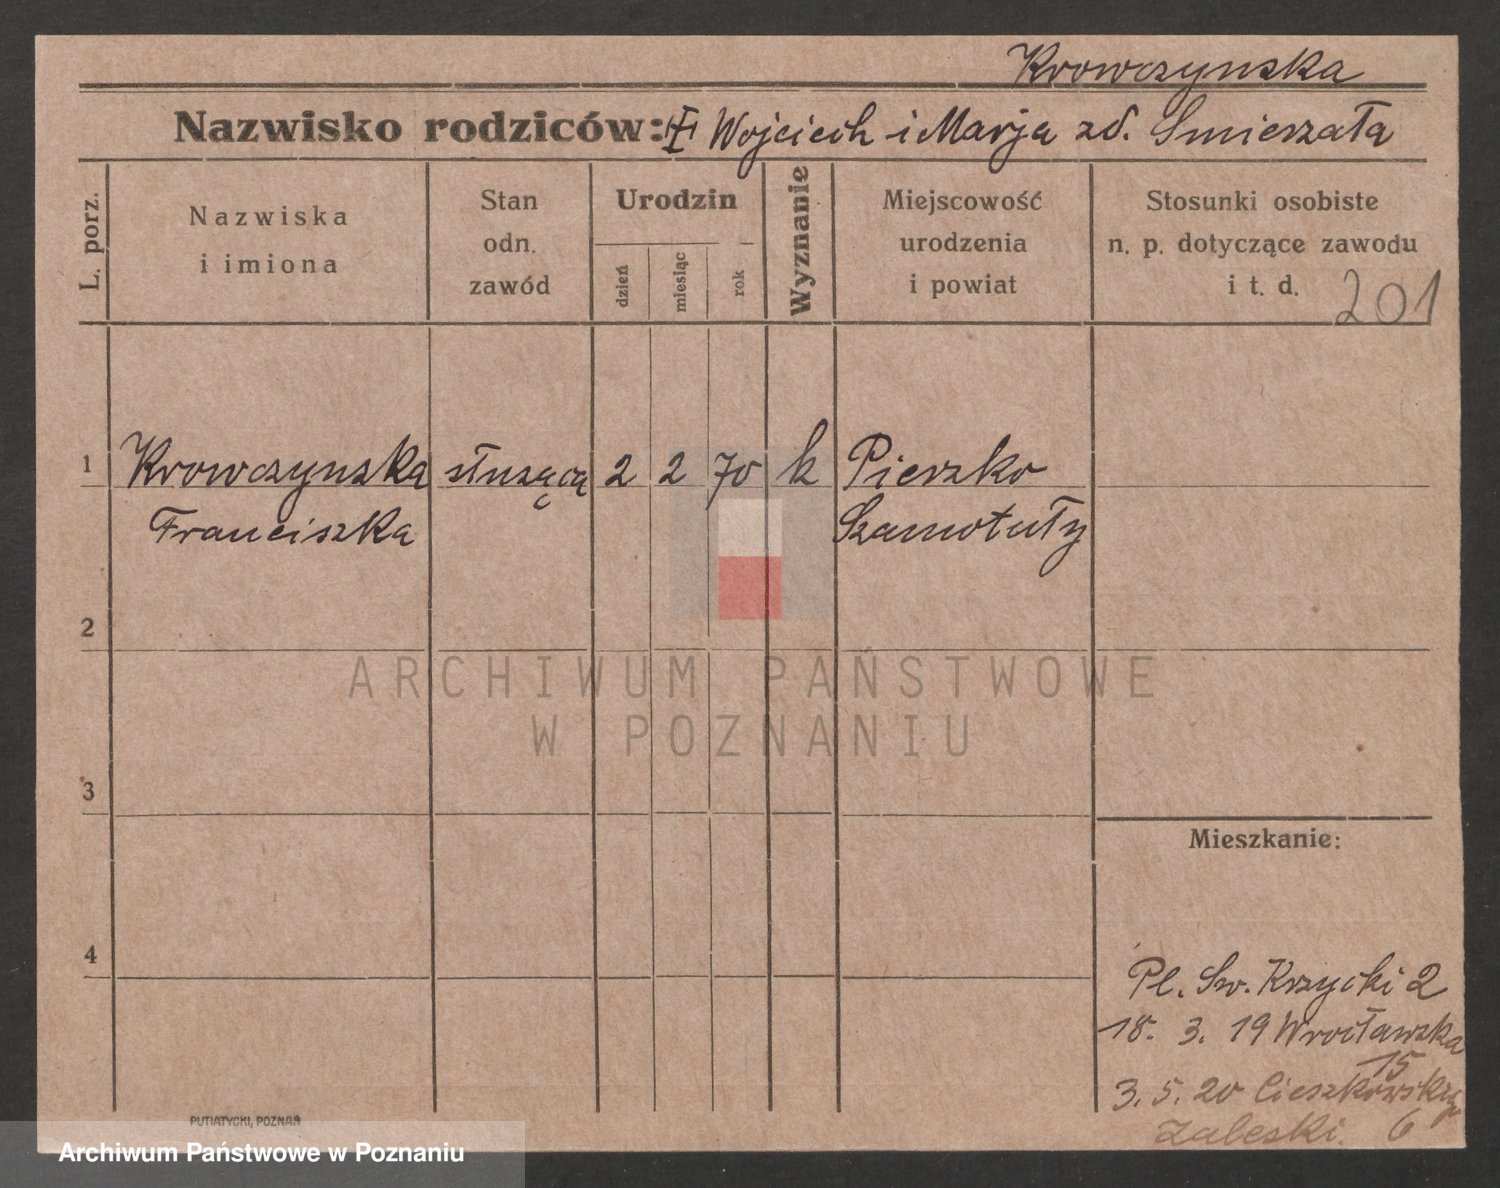 Krowczynska
Nazwisko rodziców: Wojciech i Marja zd. Smierzała
L. porz.
Nazwiska
i imiona
Stan
odn.
zawód
Urodzin
dzień
miesiąc
rok
Wyznanie
Miejscowość
urodzenia
i powiat
Stosunki osobiste
n. p. dotyczące zawodu
i t. d.
201
1 Krowczynska służąca 2 2 70 k Pierzko
Franciszka Szamotuły
2
ARCHIWUM PAŃSTWOWE
W POZNANIU
3
Mieszkanie:
4
Pl. Sw. Krzycki 2
18. 3. 19 Wrocławska
15
3. 5. 20 Cieszkowskiego
Zaleski. 6
PUTIATYCKI, POZNAŃ
Archiwum Państwowe w Poznaniu